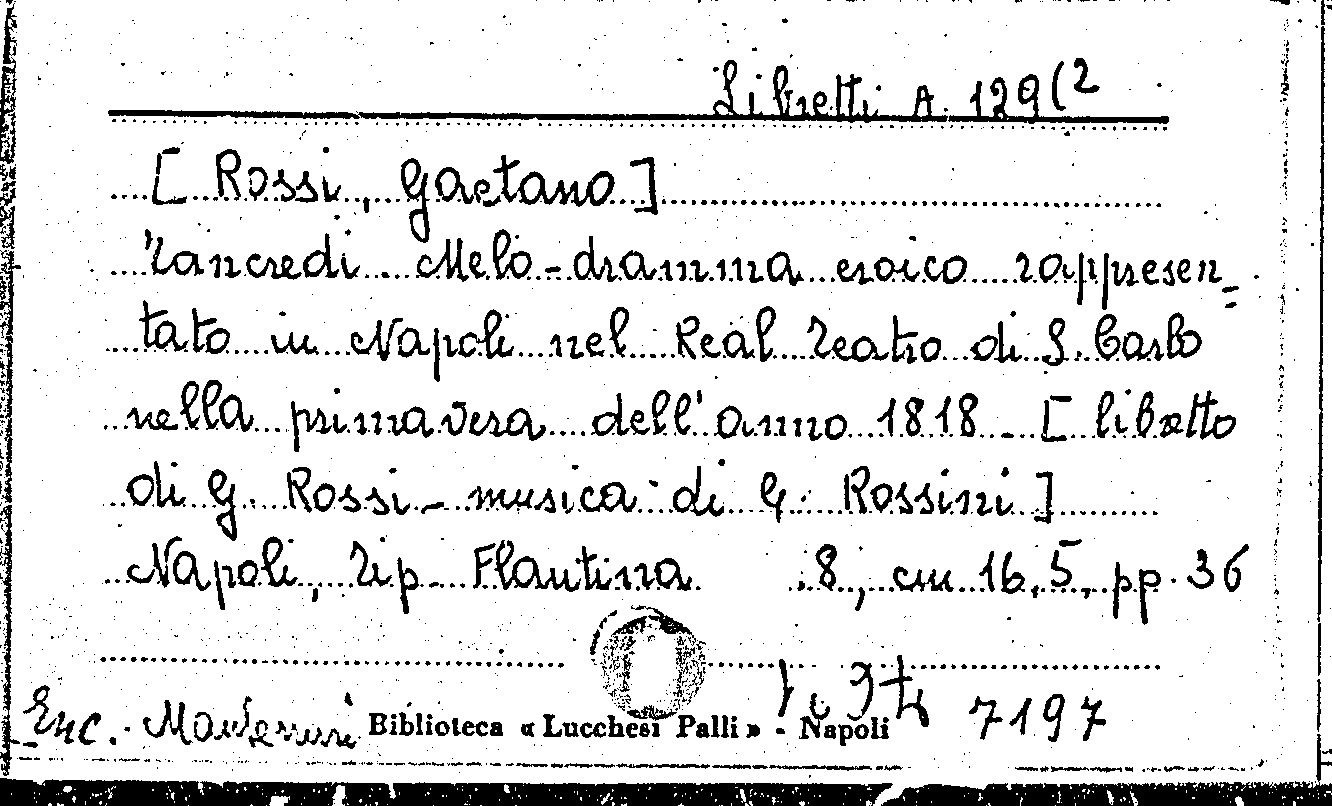 Libretti A. 129(2
[ Rossi, Gaetano ]
Tancredi. Melo-dramma eroico rappresen=
tato in Napoli nel Real Teatro di S. Carlo
nella primavera dell'anno 1818 - [ libretto
di G. Rossi - musica di G. Rossini ]
Napoli, Tip. Flautina 8, cm 16,5, pp. 36
Enc. Biblioteca « Lucchesi Palli » - Napoli 7197